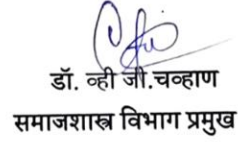 डॉ. व्ही जी.चव्हाण
समाजशास्त्र विभाग प्रमुख